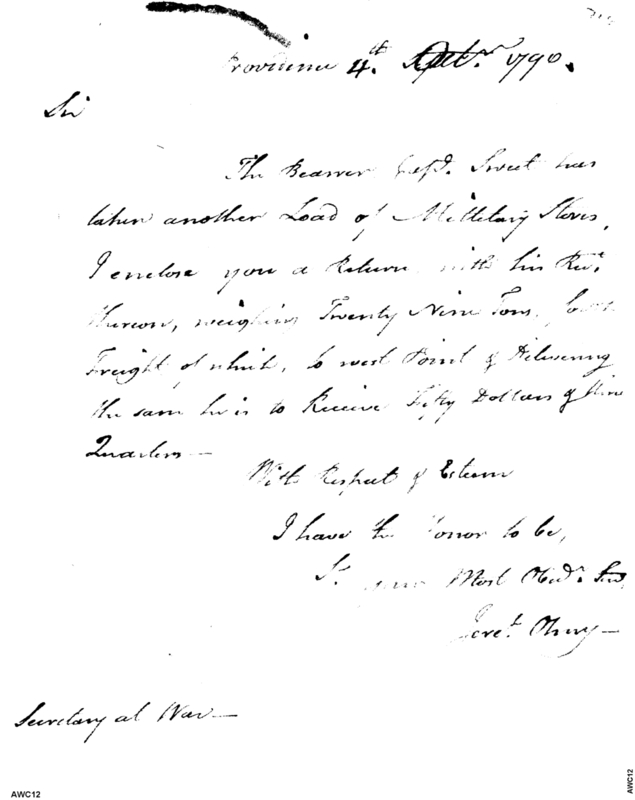 Providence 4th. Octr. 1790.
Sir
The Bearer Capt. Sweet has
taken another Load of Milletary Stores,
I enclose you a Return with his Rect.
thereon, weighing Twenty Nine Tons, for the
Freight of which, to west Point & Delivering
the same he is to Receive Fifty Dollars & three
Quarters—
With Respect & Esteem
I have the Honor to be,
Sr. your Most Obedt. Serv.
Jereh. Olney—
Secretary at War—
AWC12
AWC12